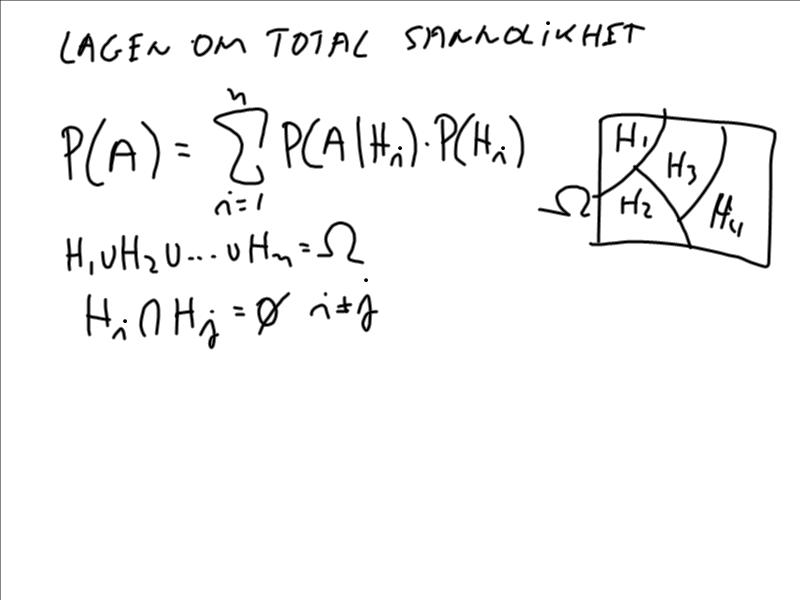 LAGEN OM TOTAL SANNOLIKHET
P(A) = ∑_{i=1}^{n} P(A|H_i)·P(H_i)
H_1∪H_2∪...∪H_n=Ω
H_i∩H_j=∅ i≠j
Ω
H_1
H_3
H_2
H_4